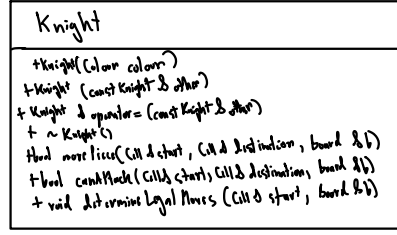 Knight
+Knight(Colour colour)
+Knight (const Knight & other)
+ Knight & operator=(const Knight & other)
+ ~Knight()
+bool movePiece(Cell & start, Cell & destination, board &b)
+bool canAttack(Cell & start, Cell & destination, board &b)
+ void determineLegalMoves (Cell & start, board &b)